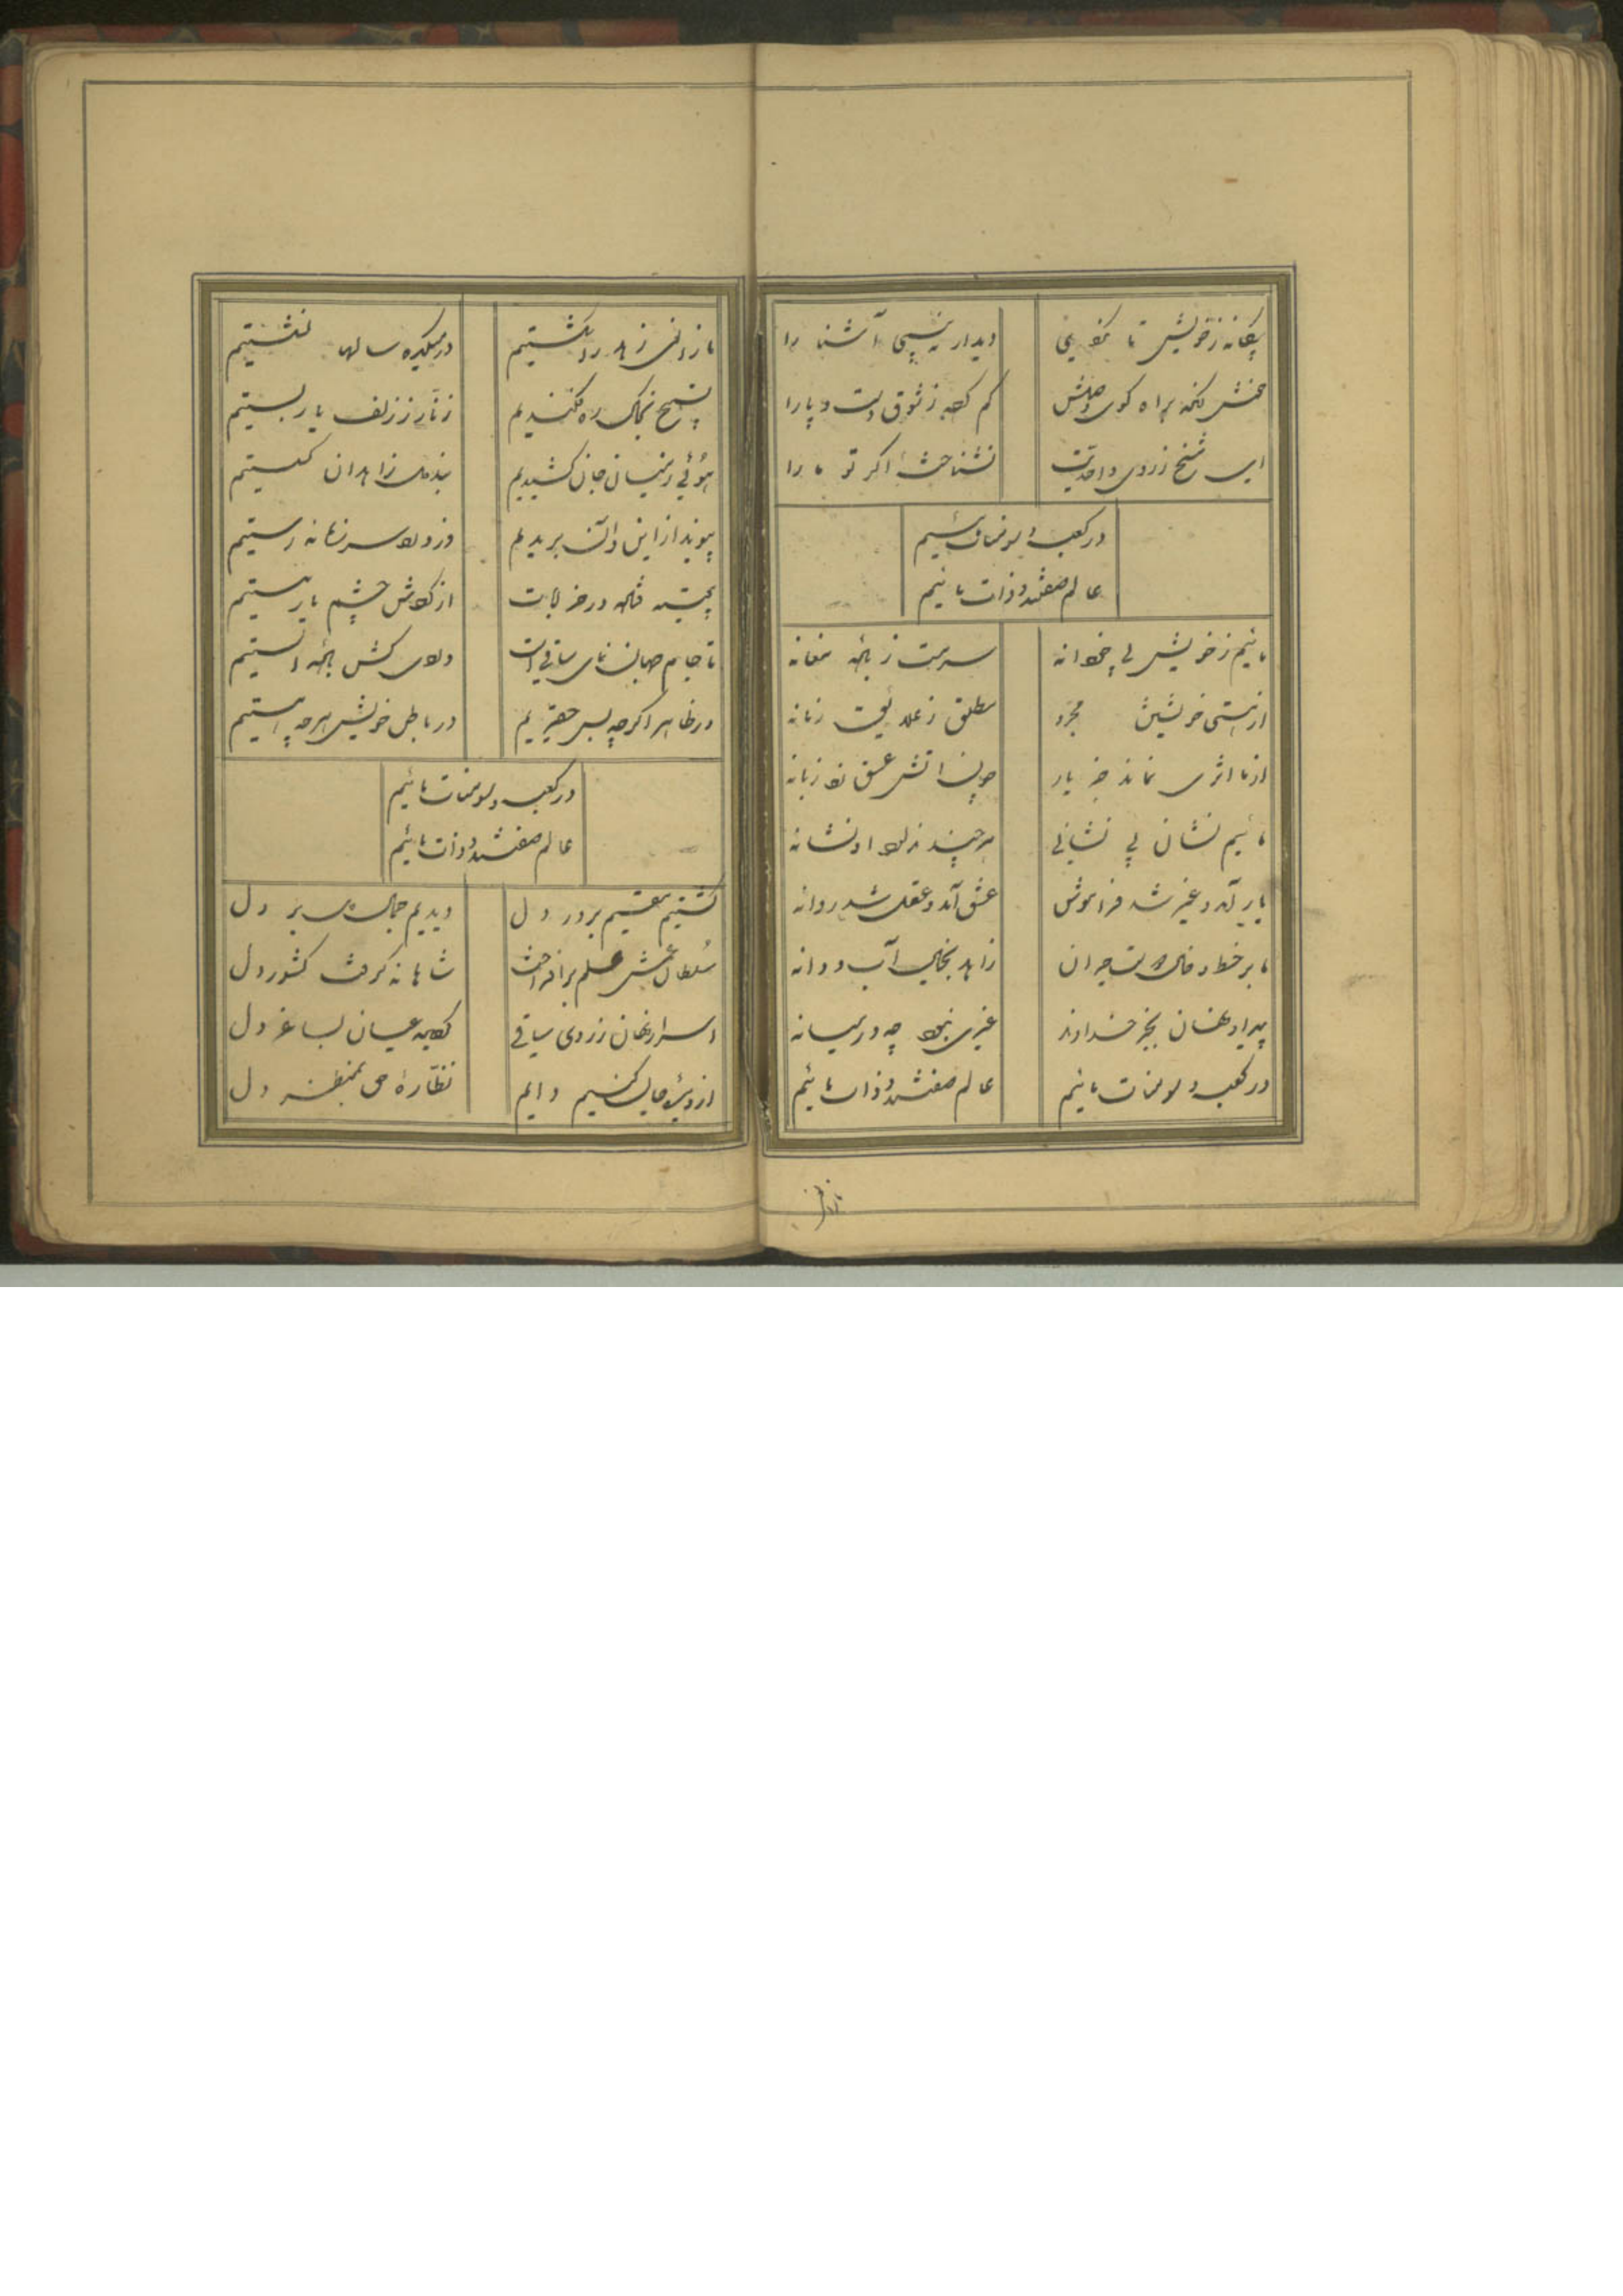 بیگانه ز خویش تا نگردی دیدار نه‌بینی آشنا را
براه کوی وصلش گم کرده ز شوق دست و پا را
ای شیخ ز روی واحدیت نشناخته اگر تو ما را
در کعبه و سومنات مائیم
عالم صفتند و ذات مائیم
مائیم ز خویش بیخودانه سرمست ز باده مغانه
از هستی خویشتن مجرد مطلق ز علایق زمانه
از ما اثری نماند جز یار چون آتش عشق زد زبانه
مائیم نشان بی نشانی هر چند ندارد او نشانه
یار آمد و غیر شد فراموش عشق آمد و عقل شد روانه
ما بر خط و خال تست حیران زاهد بخیال آب و دانه
پیدا و نهان بجز خداوند غیری نبود چه در میانه
در کعبه و سومنات مائیم عالم صفتند و ذات مائیم
ما زاهد را شکستیم در میکده سالها نشستیم
تسبیح بخاک ره فکندیم زنار ز زلف یار بستیم
هوئی ز میان جان کشیدیم بند زاهدان گسستیم
پیوند از این و آن بریدیم وز زمانه رستیم
در خرابات از چشم یار مستیم
تا جام جهان نمای ساقی است باده الستیم
در ظاهر اگر چه بس حقیریم در باطن خویش هر چه هستیم
در کعبه و سومنات مائیم
عالم صفتند و ذات مائیم
گشتیم مقیم بر در دل دیدیم جمال بر دل
سلطان غمش علم برافراخت شاهانه گرفت کشور دل
اسرار نهان ز روی ساقی گردیده عیان بساغر دل
از دیده جان کنیم دایم نظاره حق بمنظر دل